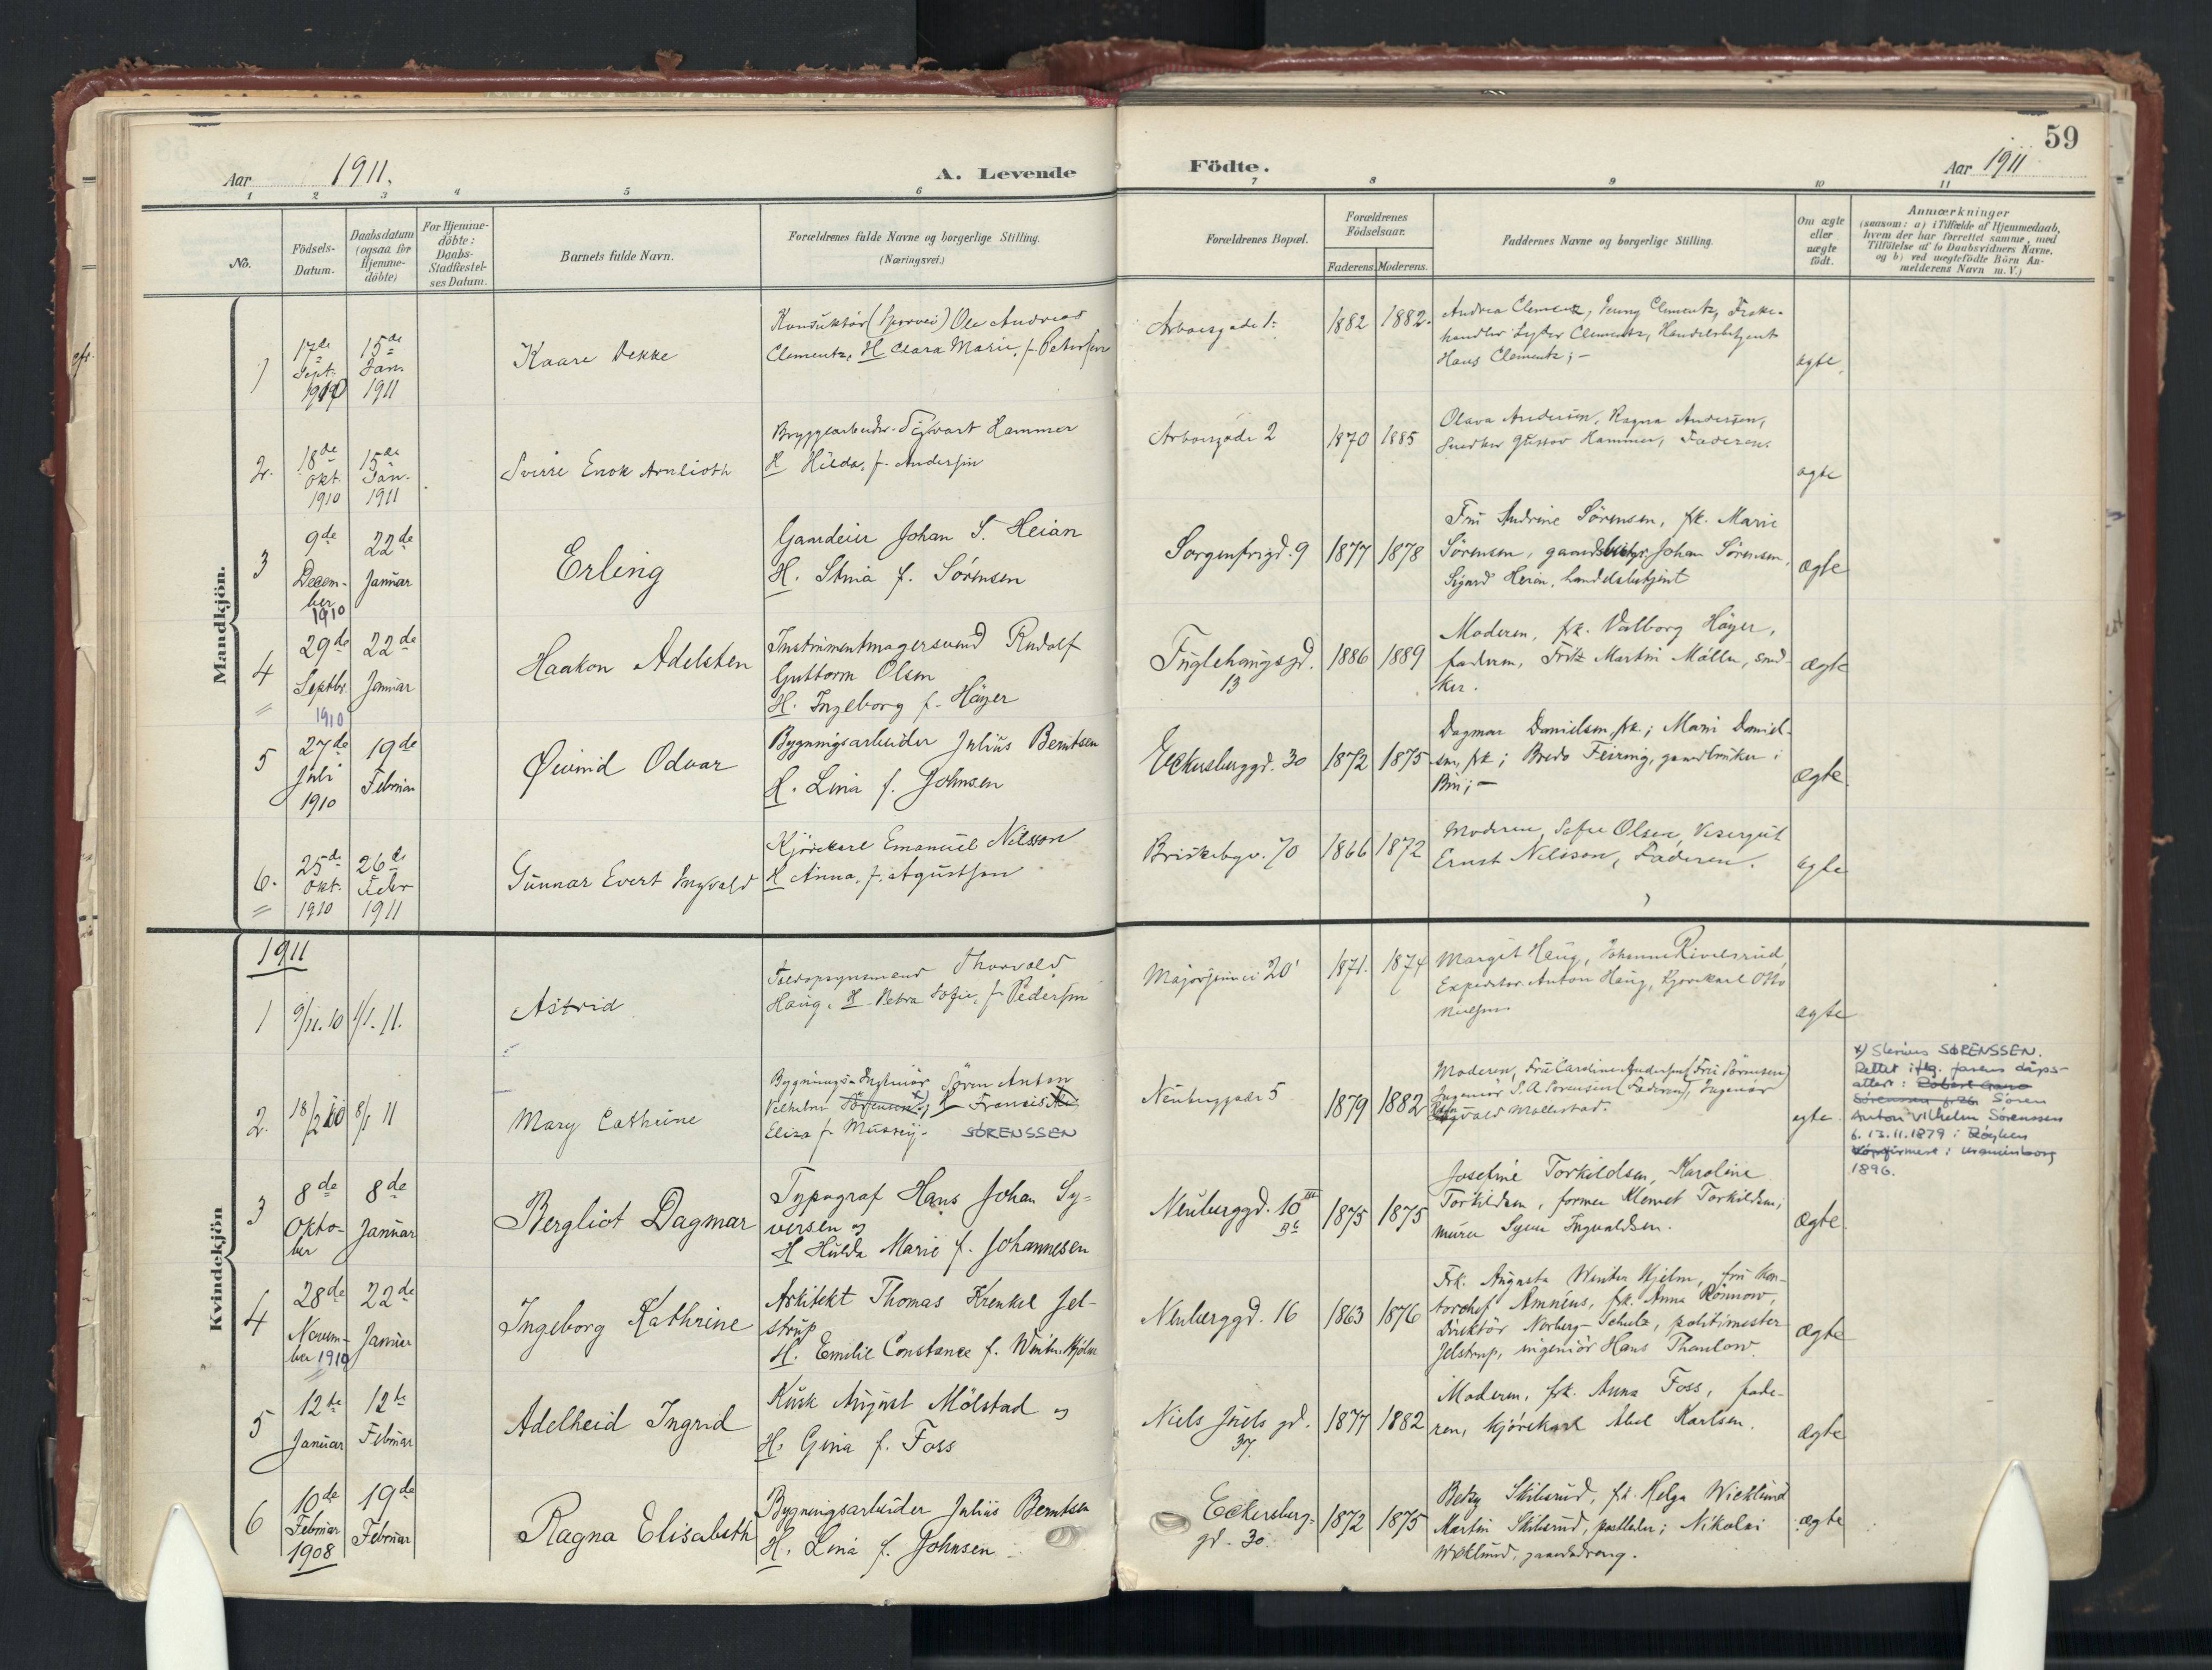 59
Aar 1911. A. Levende Födte. Aar 1911
1 2 3 4 5 6 7 8 9 10 11
No.
Födsels-
Datum.
Daabsdatum
(ogsaa for
Hjemme-
döbte)
For Hjemme-
döbte:
Daabs-
Stadfæstel-
ses Datum.
Barnets fulde Navn.
Forældrenes fulde Navne og borgerlige Stilling.
(Næringsvei.)
Forældrenes Bopæl.
Forældrenes
Födselsaar.
Faderens. Moderens.
Faddernes Navne og borgerlige Stilling.
Om ægte
eller
uægte
födt.
Anmærkninger
(saasom: a) i Tilfælde af Hjemmedaab,
hvem der har forrettet samme, med
Tilföielse af to Daabsvidners Navne,
og b) ved uægtefödte Börn An-
melderens Navn m. V.)
Mandkjön.
1
17de
Sept.
1910
15de
Jan.
1911
Kaare Dekke
Konduktör (Sporvei) Ole Andreas
Clementz, H Clara Marie, f. Petersen
1882 1882.
Andrea Clementz, Jenny Clementz,
handler Clementz, Handelsbetjent
Hans Clementz; –
ægte
2.
18de
Okt.
1910
15de
Jan.
1911
Sverre Enok Arnlioth
Bryggearbeider Sigvart Hammer
H Hilda, f. Andersen
2
1870 1885
Olava Andersen, Ragna Andersen,
Snedker Gustav Hammer, Faderen.
ægte
3
9de
Decem-
ber
1910
22de
Januar
Erling
Gaardeier Johan S. Heian
H. Stina f. Sörensen
Sorgenfrigd. 9
1877 1878
Fru Andrine Sörensen, frk. Marie
Sörensen, Johan Sörensen,
Sigurd Heian, handelsbetjent
ægte
4
29de
Septbr.
1910
22de
Januar
Haakon Adelsten
Instrumentmagersvend Rudolf
Guttorm Olsen
H. Ingeborg f. Höyer
Fuglehaugsgd.
13
1886 1889
Moderen, frk. Valborg Höyer,
faderen, Fritz Martin Möller, sned-
ker.
ægte
5
27de
Juli
1910
19de
Februar
Øivind Odvar
Bygningsarbeider Julius Berntsen
H. Lina f. Johnsen
Eckersberggd. 30
1872 1875
Dagmar Danielsen, frk; Marie Daniel-
sen, frk; Bredo Feiring, gaardbruker i
ægte
6.
25de
Okt.
1910
26de
Febr
1911
Gunnar Evert Ingvald
Kjörekarl Emanuel Nilsson
H Anna, f. Agustsen
Briskebyv. 70
1866 1872
Moderen, Sofie Olsen, Visergut
Ernst Nilsson, Faderen.
ægte
Kvindekjön
1911
1
9/11. 10
1/1. 11.
Astrid
Toldopsynsmand Thorvald
Haug, H Petra Sofie, f. Pedersen
Majorstuvei 20
1871. 1874
Margit Haug, Johanne Rivelsrud,
Expeditör Anton Haug, Kjörekarl Otto
Nielsen.
ægte
2.
18/2 10
8/1 11
Mary Cathrine
Bygnings-Ingeniör Sören Anton
Vilhelm Sörensen x); H Francis
Eliza f. Mussey. SØRENSSEN
Neuberggade 5
1879 1882
Moderen, Frú Caroline Andersen (Frú Sörensen)
Ingeniör S. A. Sörensen (Faderen), Ingeniör
Mollestad.
ægte
x) Skrives SØRENSSEN.
Rettet iflg. farens dåps-
attest: Sören
Anton Vilhelm Sörenssen
f. 13.11.1879 i Röyken
Uranienborg
1896.
3
8de
Okto-
ber
8de
Januar
Bergliot Dagmar
Typograf Hans Johan Sy-
versen og
H Hulda Marie f. Johannesen
Neuberggd. 10 III
1875 1875
Josefine Torkildsen, Karoline
Torkildsen, former Klemet Torkildsen,
murer Syver Ingvaldsen.
ægte
4
28de
Novem-
ber 1910
22de
Januar
Ingeborg Kathrine
Arkitekt Thomas Krenkel Jel-
strup
H. Emilie Constance f. Winter Hjelm
Neuberggd. 16
1863 1876
Frk. Augusta Winter Hjelm, fru kon-
torchef Amnéus, frk. Anna Rönnow,
Direktör Norberg-Schulz, politimester
Jelstrup, ingeniör Hans Thaulow.
ægte
5
12te
Januar
12te
Februar
Adelheid Ingrid
Kusk August Mölstad og
H. Gina f. Foss
Niels Juels gd.
37.
1877 1882
Moderen, frk. Anna Foss, fade-
ren, kjörekarl Abel Karlsen.
ægte
6
10de
Februar
1908
19de
Februar
Ragna Elisabeth
Bygningsarbeider Julius Berntsen
H. Lina f. Johnsen
Eckersberg-
gd. 30.
1872 1875
Betzy Skibsrud, frk. Helga Wicklund
Martin Skibsrud, Nikolai
Wicklund, gaardsdreng.
ægte